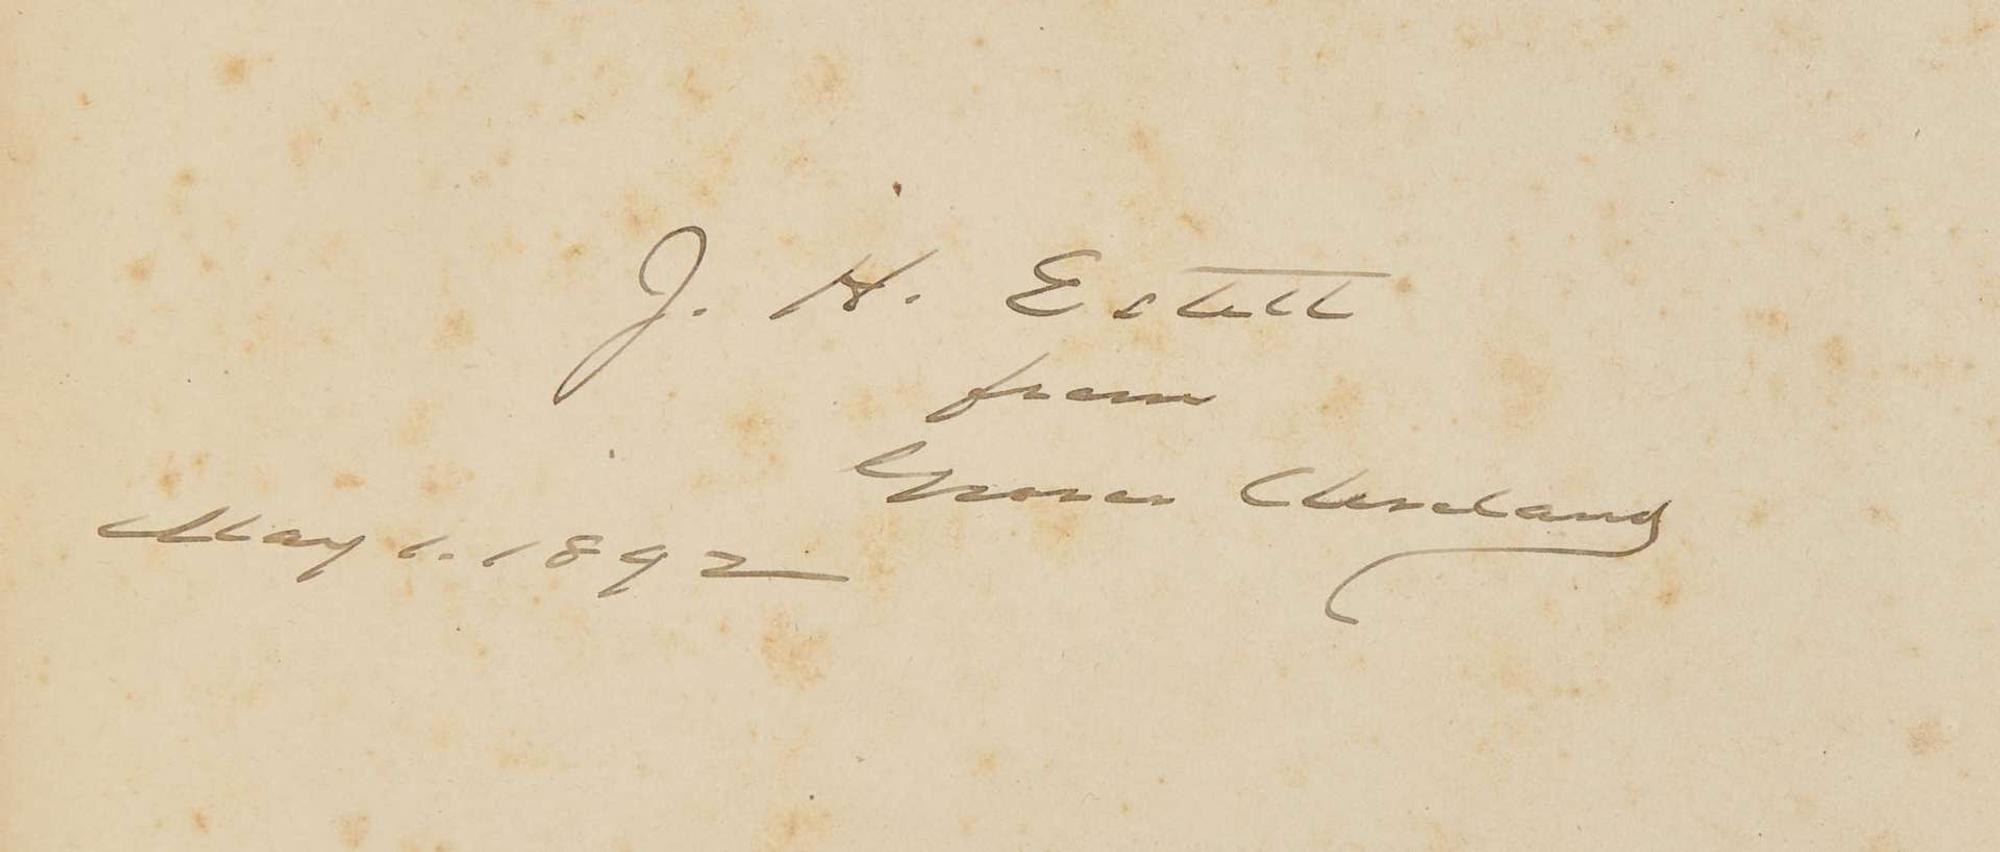 J. H. Estell
from
Grover Cleveland
May 1. 1892